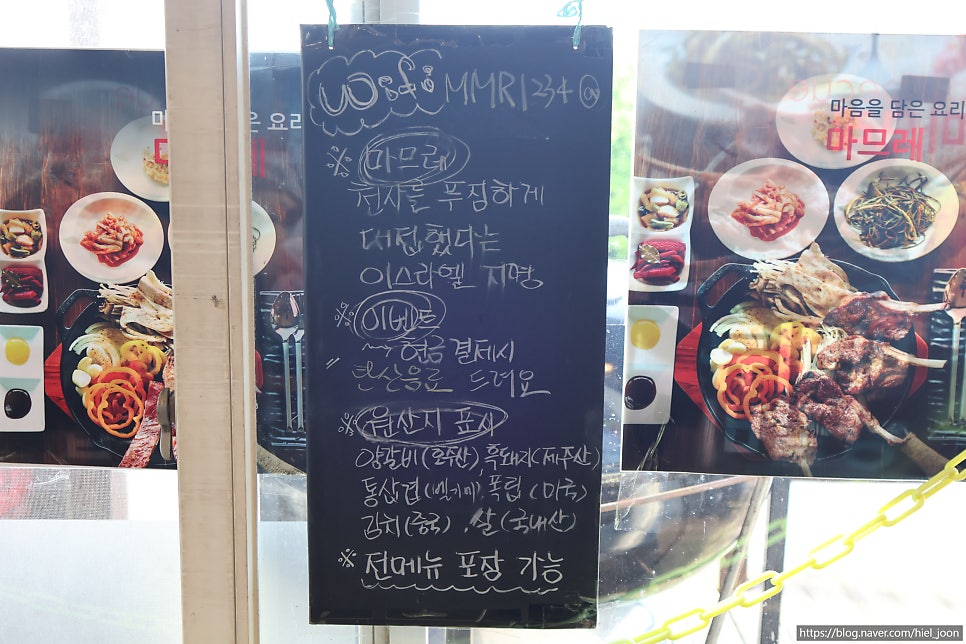 wifi MMR1234@
※ 마므레
천사를 푸짐하게
대접했다는
이스라엘 지명
※ 이벤트
~> 현금결제시
탄산음료 드려요
※ 원산지 표시
양갈비(호주산), 흑돼지(제주산)
통삼겹(벨기에), 폭립(미국)
김치(중국), 쌀(국내산)
※ 전메뉴 포장 가능
마음을 담은 요리
마므레
은 요리
https://blog.naver.com/hiel_joon